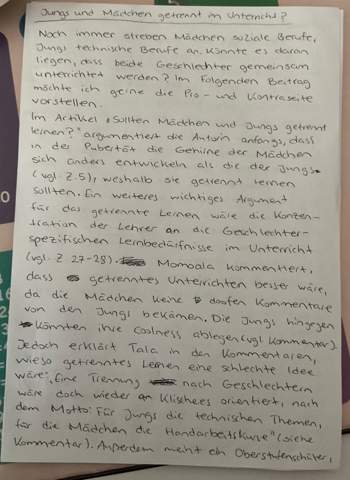 Jungs und Mädchen getrennt im Unterricht?
Noch immer streben Mädchen soziale Berufe,
Jungs technische Berufe an. Könnte es daran
liegen, dass beide Geschlechter gemeinsam
unterrichtet werden? Im Folgenden Beitrag
möchte ich gerne die Pro- und Kontraseite
vorstellen.
Im Artikel „Sollten Mädchen und Jungs getrennt
lernen?" argumentiert die Autorin anfangs, dass
in der Pubertät die Gehirne der Mädchen
sich anders entwickeln als die der Jungs
(vgl. Z.5), weshalb sie getrennt lernen
sollten. Ein weiteres wichtiges Argument
für das getrennte Lernen wäre die Konzen-
tration der Lehrer an die Geschlechter-
spezifischen Lernbedürfnisse im Unterricht
(vgl. Z 27-28). Momoala kommentiert,
dass getrenntes Unterrichten besser wäre,
da die Mädchen keine doofen Kommentare
von den Jungs bekämen. Die Jungs hingegen
könnten ihre Coolness ablegen (vgl. Kommentar).
Jedoch erklärt Tala in den Kommentaren,
wieso getrenntes Lernen eine schlechte Idee
wäre: „Eine Trennung nach Geschlechtern
wäre doch wieder an Klischees orientiert, nach
dem Motto: Für Jungs die technischen Themen,
für die Mädchen die Handarbeitskurse" (siehe
Kommentar). Außerdem meint ein Oberstufenschüler,